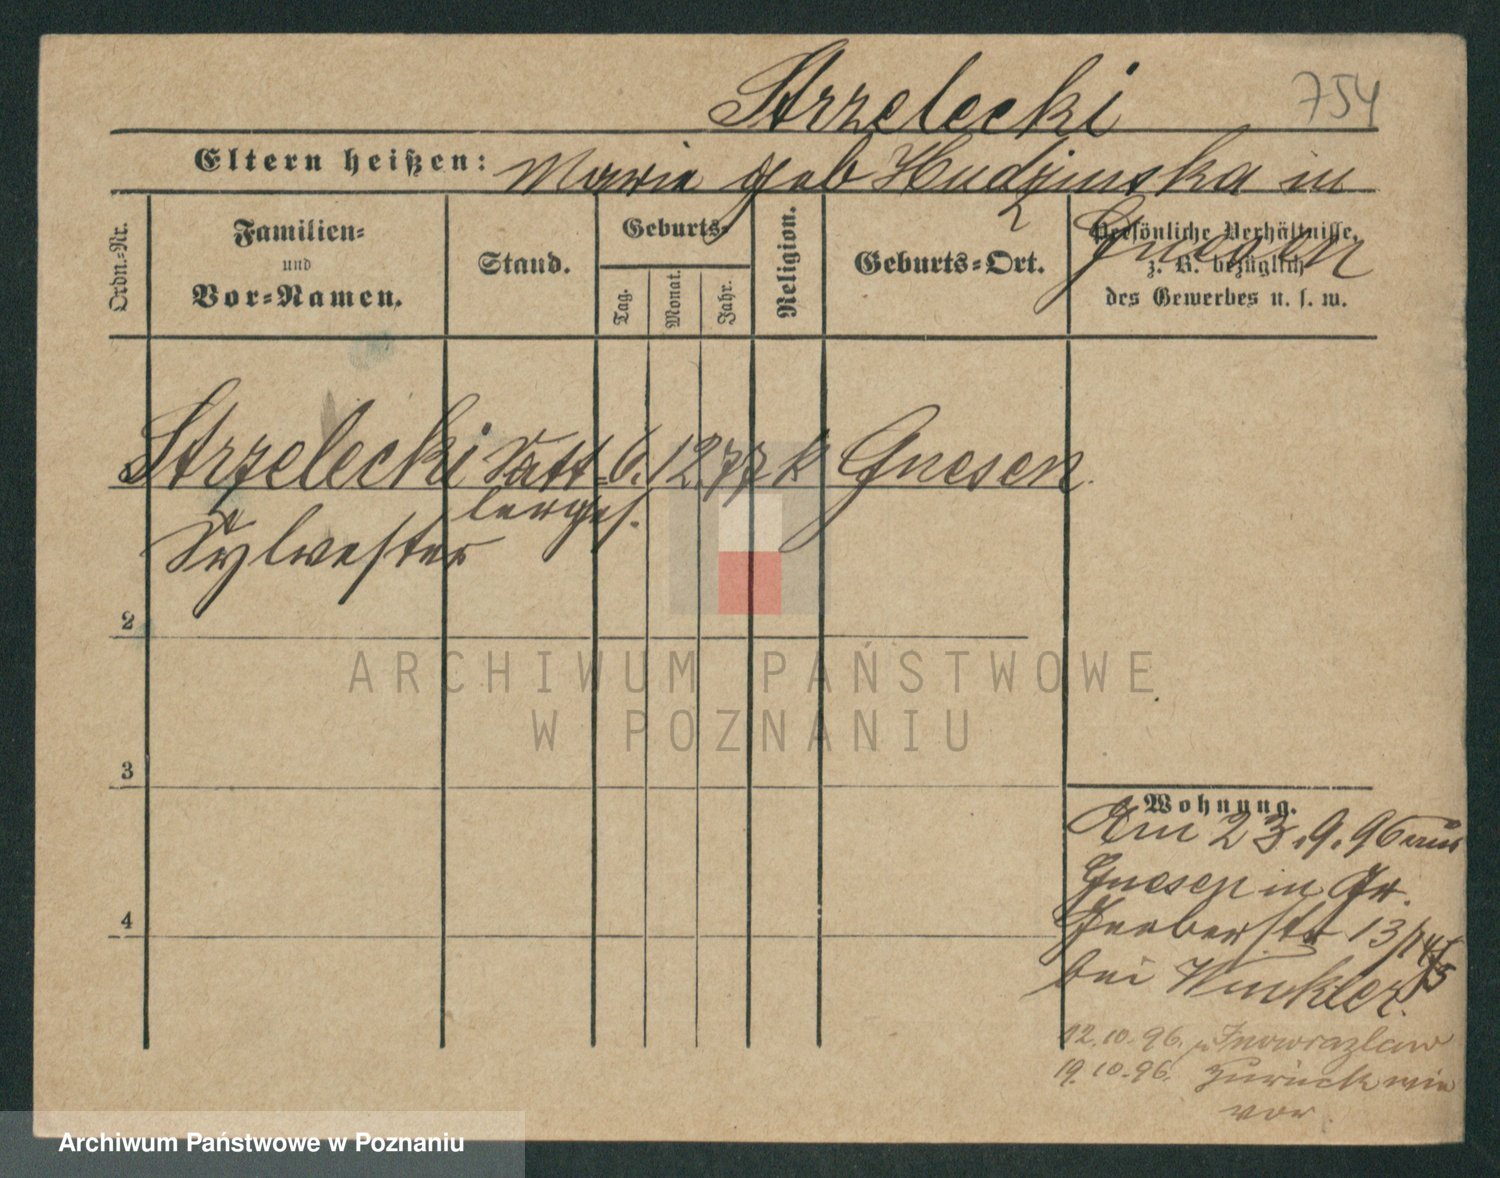 Strzelecki 754
Eltern heißen: Marie geb Hudzinska in
Gnesen
Ordn.-Nr.
Familien-
und
Vor-Namen.
Stand.
Geburts-
Tag.
Monat.
Jahr.
Religion.
Geburts-Ort.
Persönliche Verhältnisse,
z. B. bezüglich
des Gewerbes u. s. w.
Strzelecki Satt- 6. 12. 77 k Gnesen.
lerges.
Sylvester
2
3
4
Wohnung.
Am 23.9.96 aus
Gnesen in Gr.
Gerberstr 13
bei Winkler.
12.10.96. Inowrazlaw
19.10.96. zurück wie
vor.
ARCHIWUM PAŃSTWOWE
W POZNANIU
Archiwum Państwowe w Poznaniu